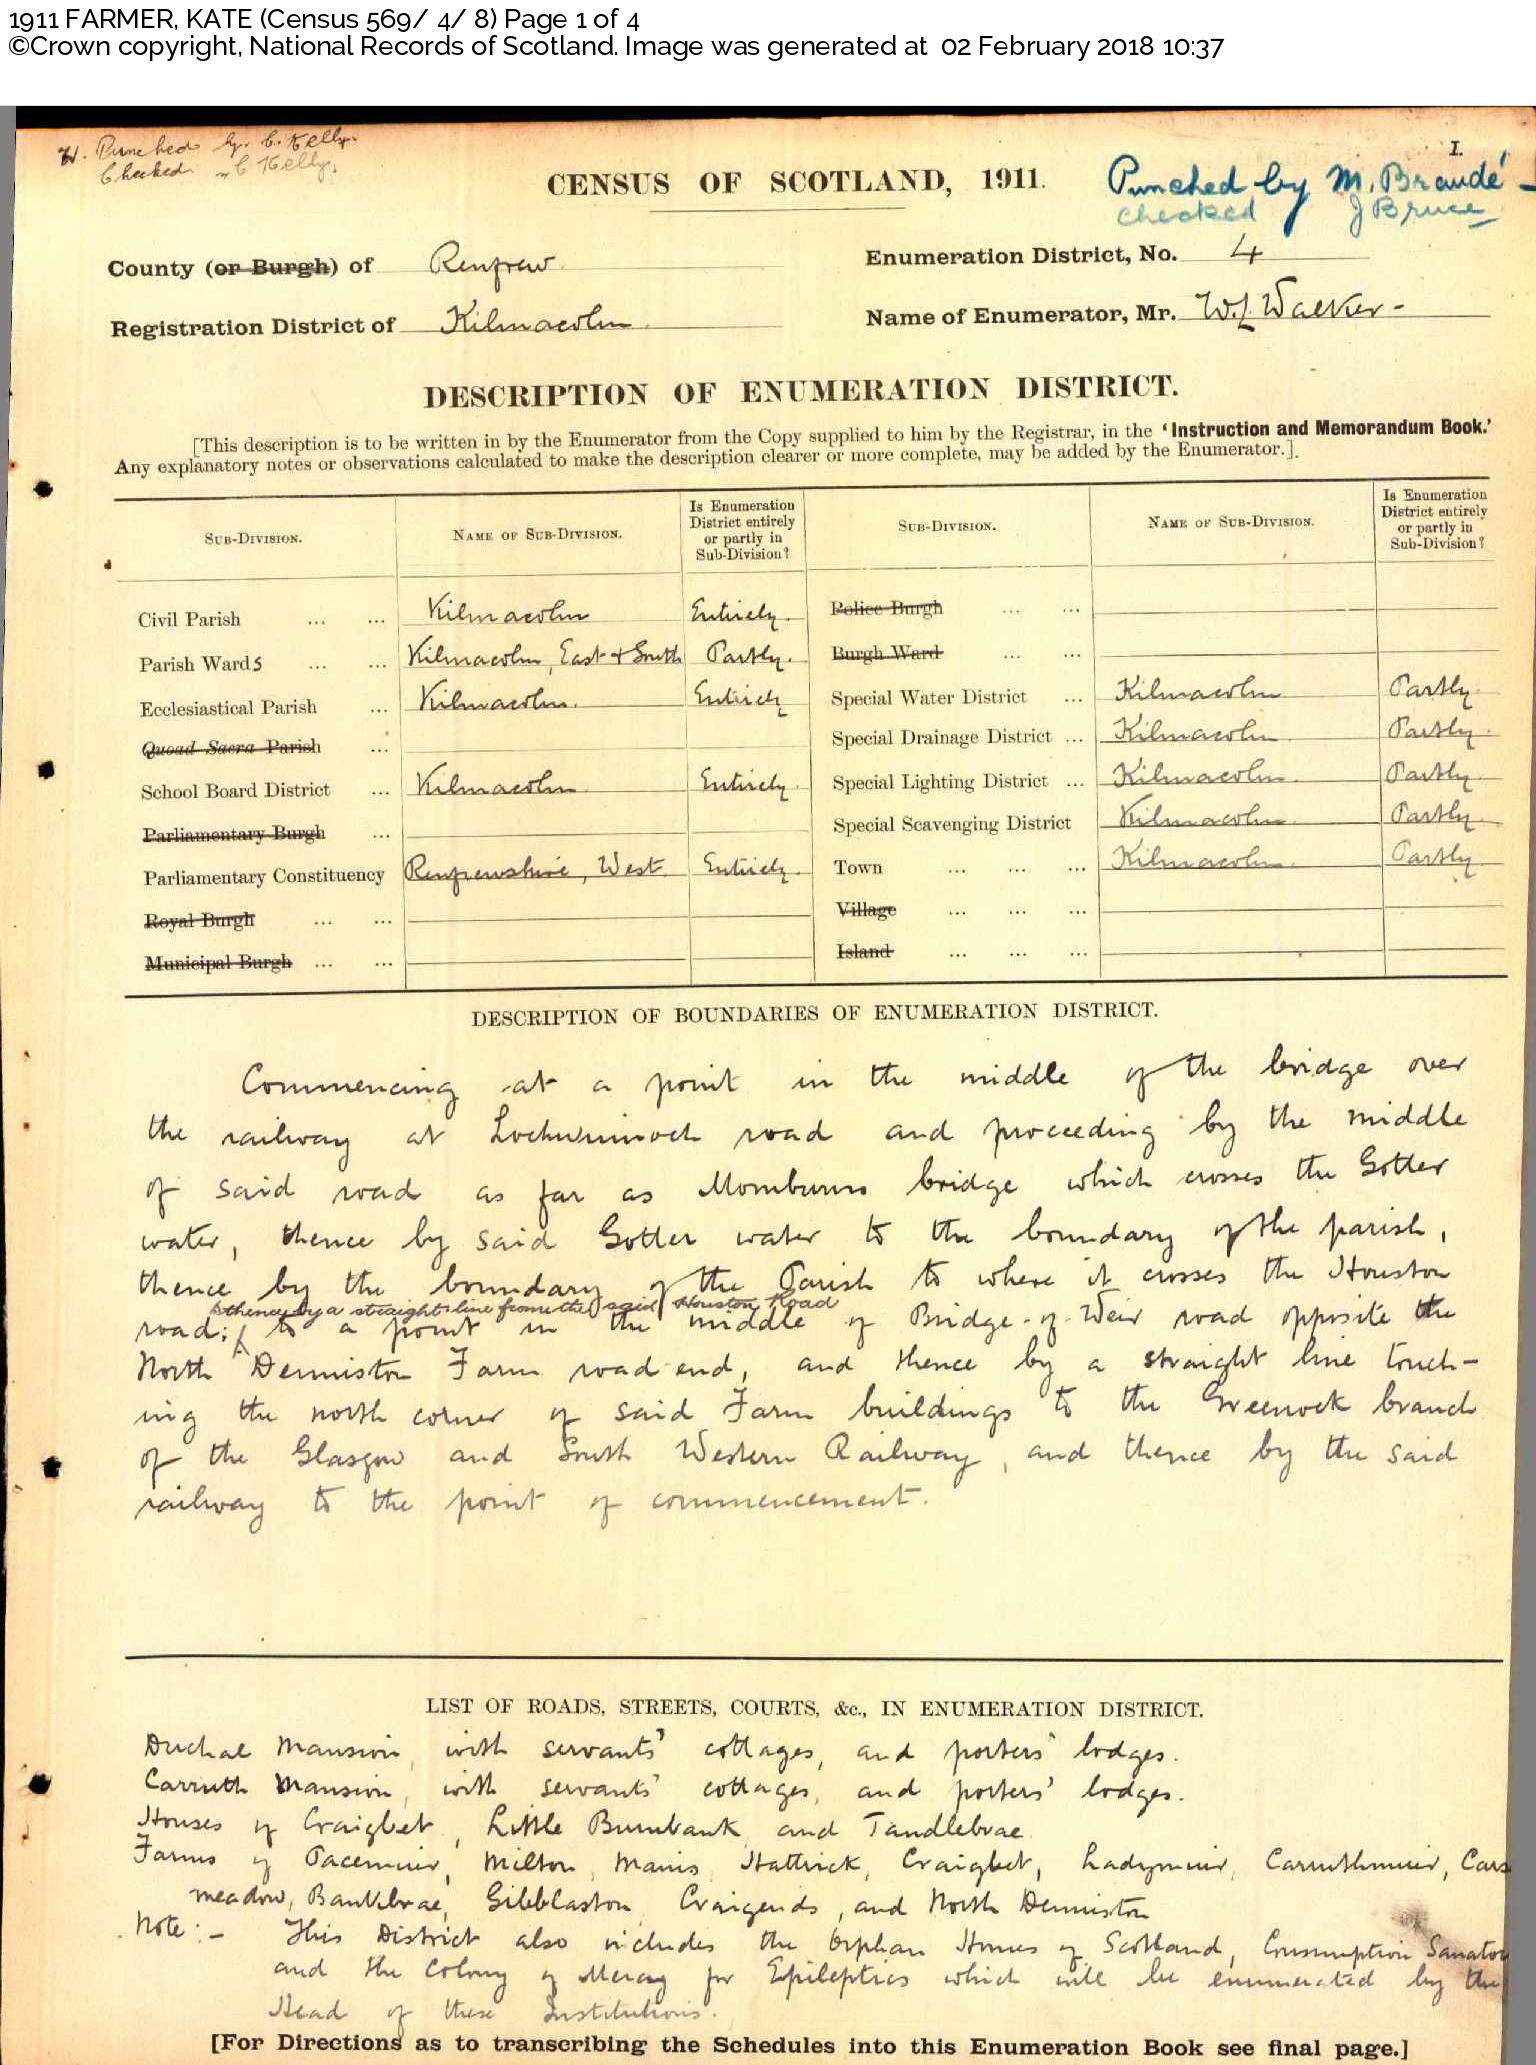 1911 FARMER, KATE (Census 569/ 4/ 8) Page 1 of 4
©Crown copyright, National Records of Scotland. Image was generated at 02 February 2018 10:37
Punched by C. Kelly.
Checked " C Kelly.
I.
CENSUS OF SCOTLAND, 1911.
Punched by M. Braudé
checked J Bruce
County (or Burgh) of Renfrew
Enumeration District, No. 4
Registration District of Kilmacolm
Name of Enumerator, Mr. W.L. Walker
DESCRIPTION OF ENUMERATION DISTRICT.
[This description is to be written in by the Enumerator from the Copy supplied to him by the Registrar, in the 'Instruction and Memorandum Book.'
Any explanatory notes or observations calculated to make the description clearer or more complete, may be added by the Enumerator.].
SUB-DIVISION. NAME OF SUB-DIVISION. Is Enumeration District entirely or partly in Sub-Division? SUB-DIVISION. NAME OF SUB-DIVISION. Is Enumeration District entirely or partly in Sub-Division?
Civil Parish ... ... Kilmacolm Entirely. Police Burgh ... ...
Parish Wards ... ... Kilmacolm, East & South Partly. Burgh Ward ... ...
Ecclesiastical Parish ... Kilmacolm. Entirely Special Water District ... Kilmacolm Partly.
Quoad Sacra Parish ... Special Drainage District ... Kilmacolm Partly.
School Board District ... Kilmacolm Entirely. Special Lighting District ... Kilmacolm. Partly.
Parliamentary Burgh ... Special Scavenging District Kilmacolm Partly.
Parliamentary Constituency Renfrewshire, West Entirely. Town ... ... ... Kilmacolm. Partly
Royal Burgh ... ... Village ... ... ...
Municipal Burgh ... ... Island ... ... ...
DESCRIPTION OF BOUNDARIES OF ENUMERATION DISTRICT.
Commencing at a point in the middle of the bridge over
the railway at Lochwinnoch road and proceeding by the middle
of said road as far as Momburns bridge which crosses the Gotter
water, thence by said Gotter water to the boundary of the parish,
thence by the boundary of the Parish to where it crosses the Houston
thence by a straight line from the said Houston Road
road; to a point in the middle of Bridge-of-Weir road opposite the
North Denniston Farm road end, and thence by a straight line touch-
ing the north corner of said Farm buildings to the Greenock branch
of the Glasgow and South Western Railway, and thence by the said
railway to the point of commencement.
LIST OF ROADS, STREETS, COURTS, &c., IN ENUMERATION DISTRICT.
Duchal Mansion, with servants' cottages, and porters' lodges.
Carruth Mansion, with servants' cottages, and porters' lodges.
Houses of Craigbet, Little Burnbank, and Tandlebrae
Farms of Pacemuir, Milton, Mains, Hattrick, Craigbet, Ladymuir, Carruthmuir, Cars
meadow, Bankbrae, Gibblaston, Craigends, and North Denniston
Note:- This District also includes the Orphan Homes of Scotland, Consumption Sanator
and the Colony of Mercy for Epileptics which will be enumerated by the
Head of these Institutions.
[For Directions as to transcribing the Schedules into this Enumeration Book see final page.]